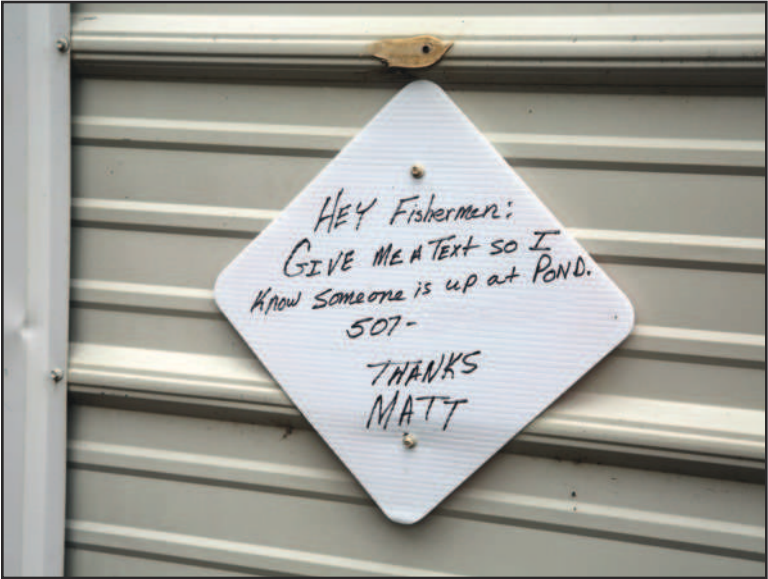 HEY Fishermen:
GIVE ME A TEXT SO I
Know Someone is up at POND.
507-
THANKS
MATT